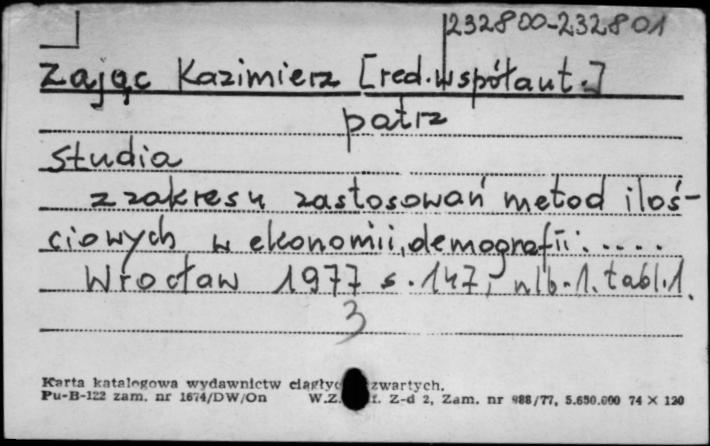 232800-232801
Zając Kazimierz [red. współaut.]
patrz
Studia
z zakresu zastosowań metod iloś-
ciowych w ekonomii, demografii.....
Wrocław 1977 s. 147, nlb. 1. tabl. 1.
3
Karta katalogowa wydawnictw zwartych.
Pu-B-122 zam. nr 1674/DW/On W.Z. Z-d 2, Zam. nr 988/77, 5.650.000 74 × 120